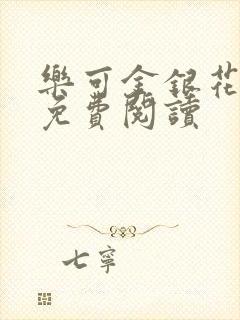 樂可金銀花
免費閱讀
七寧